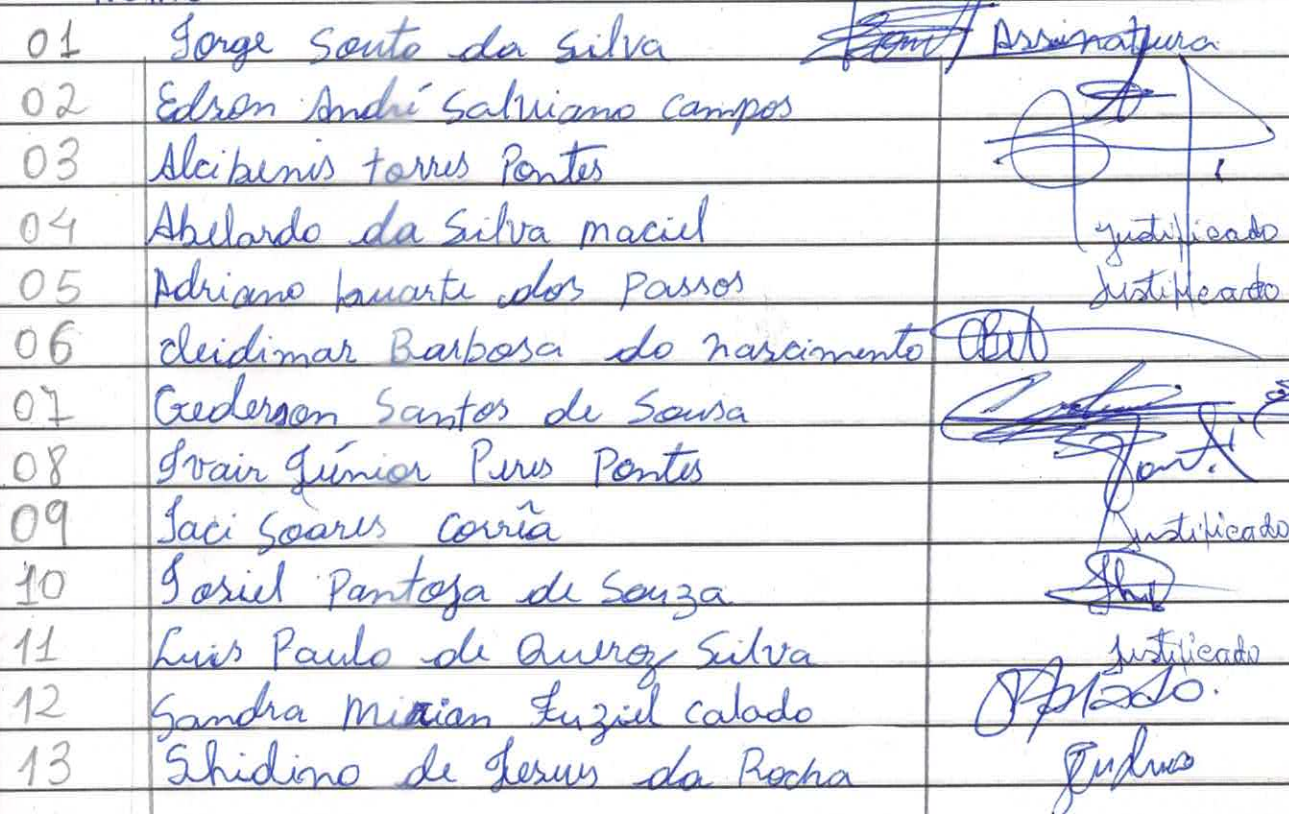 01 Jorge Souto da Silva Assinatura
02 Edson André Salviano Campos
03 Alcibenis torres Pontes
04 Abelardo da Silva maciel justificado
05 Adriano Duarte dos Passos Justificado
06 Cleidimar Barbosa do nascimento
07 Gederson Santos de Sousa
08 Ivair Júnior Peres Pontes
09 Jaci Soares Corrêa Justificado
10 Josiel Pantoja de Souza
11 Luis Paulo de Queroz Silva Justificado
12 Sandra Mirian Fuziel Calado
13 Shidino de Jesus da Rocha